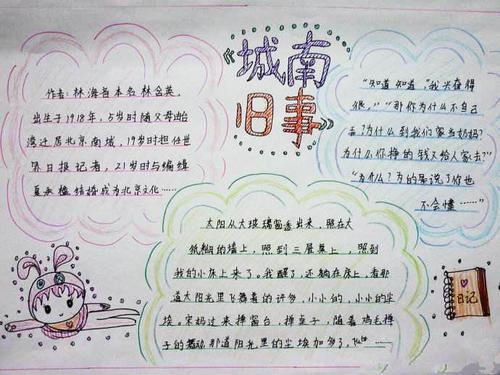 《城南
旧事》
作者：林海音本名林含英
出生于1918年，5岁时随父母迁
湾迁居北京南城，19岁时担任世
界日报记者，21岁时与编辑
夏承楹结婚成为北京文化……
"知道知道，"我兴奋得
很，""那你为什么不自己
去？为什么到我们家当奶妈？
为什么你挣的钱又给人家去？"
"为什么？为的是说了你也
不会懂……"
太阳从大玻璃窗透进来，照在大
纸糊的墙上，照到三屉桌上，照到
我的小床上来了。我醒了，还躺在床上，看那
道太阳光里飞舞着的许多，小小的，小小的尘
埃。宋妈过来掸窗台，掸桌子，随着鸡毛掸
子的舞动那道阳光里的尘埃加多了，
日记